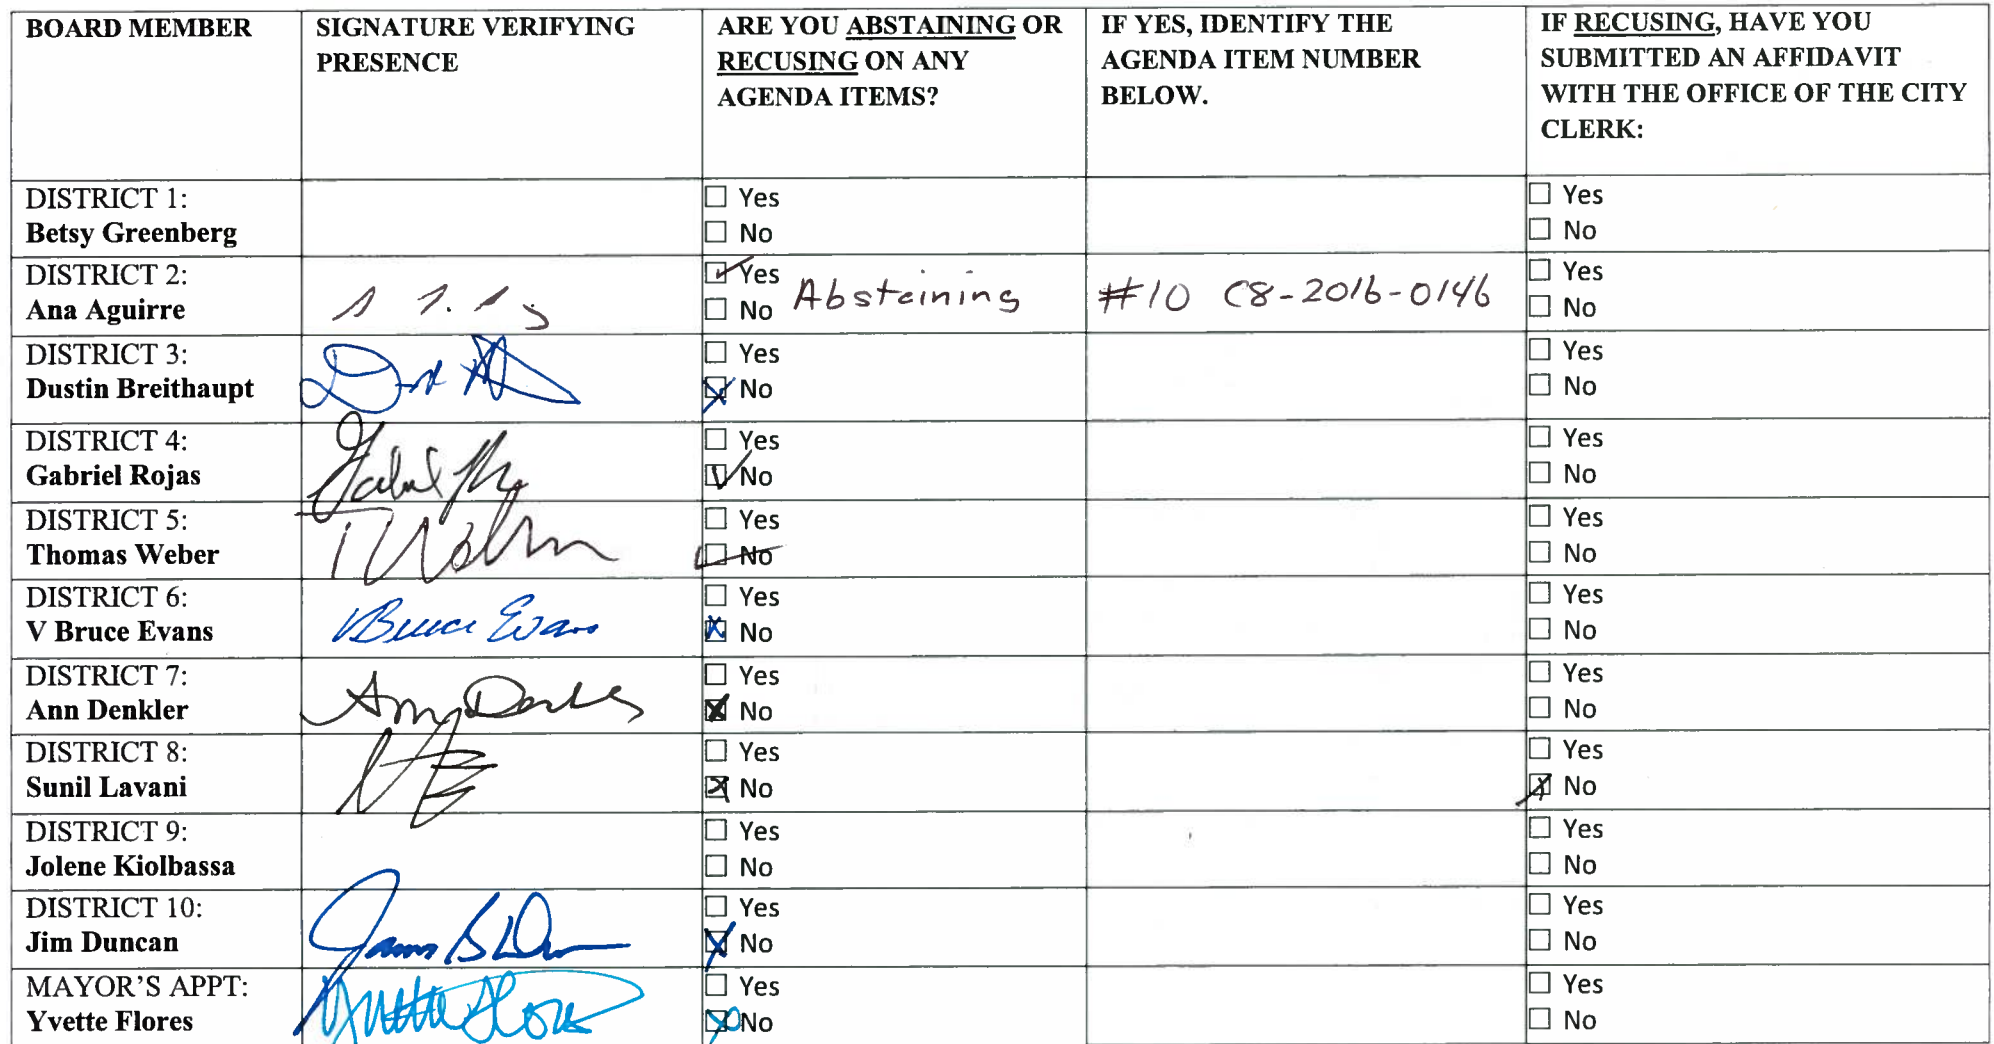 BOARD MEMBER
SIGNATURE VERIFYING
PRESENCE
ARE YOU ABSTAINING OR
RECUSING ON ANY
AGENDA ITEMS?
IF YES, IDENTIFY THE
AGENDA ITEM NUMBER
BELOW.
IF RECUSING, HAVE YOU
SUBMITTED AN AFFIDAVIT
WITH THE OFFICE OF THE CITY
CLERK:
DISTRICT 1:
Betsy Greenberg
☐ Yes
☐ No
☐ Yes
☐ No
DISTRICT 2:
Ana Aguirre
☑ Yes
☐ No Abstaining
#10 C8-2016-0146
☐ Yes
☐ No
DISTRICT 3:
Dustin Breithaupt
☐ Yes
☒ No
☐ Yes
☐ No
DISTRICT 4:
Gabriel Rojas
☐ Yes
☑ No
☐ Yes
☐ No
DISTRICT 5:
Thomas Weber
T Weber
☐ Yes
☑ No
☐ Yes
☐ No
DISTRICT 6:
V Bruce Evans
VBruce Evans
☐ Yes
☒ No
☐ Yes
☐ No
DISTRICT 7:
Ann Denkler
☐ Yes
☒ No
☐ Yes
☐ No
DISTRICT 8:
Sunil Lavani
☐ Yes
☒ No
☐ Yes
☒ No
DISTRICT 9:
Jolene Kiolbassa
☐ Yes
☐ No
☐ Yes
☐ No
DISTRICT 10:
Jim Duncan
☐ Yes
☒ No
☐ Yes
☐ No
MAYOR'S APPT:
Yvette Flores
Yvette Flores
☐ Yes
☒ No
☐ Yes
☐ No